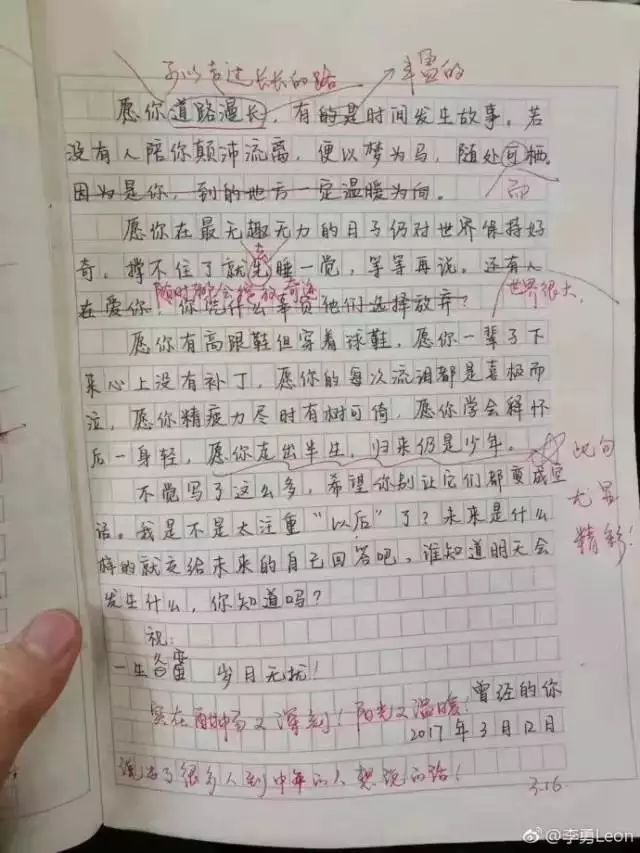 可以走过长长的路 丰盈的
愿你道路漫长，有的是时间发生故事。若
没有人陪你颠沛流离，便以梦为马，随处可栖。
因为是你，到的地方一定温暖为向。
而
愿你在最无趣无力的日子仍对世界保持好
奇，撑不住了就先睡一觉，等等再说。还有人
去
在爱你！你凭什么辜负他们选择放弃？
随时都会绽放奇迹
世界很大，
愿你有高跟鞋但穿着球鞋，愿你一辈子下
来心上没有补丁，愿你的每次流泪都是喜极而
泣，愿你精疲力尽时有树可倚，愿你学会释怀
后一身轻，愿你走出半生，归来仍是少年。
此句
尤显
精彩！
不觉写了这么多，希望你别让它们都变成空
话。我是不是太注重“以后”了？未来是什么
样的就交给未来的自己回答吧，谁知道明天会
发生什么，你知道吗？
祝：
一生 岁月无扰！
曾经的你
实在 又深刻！阳光又温暖！
2017年3月12日
说出了很多人到中年的人想说的话！
3.16
@李勇Leon